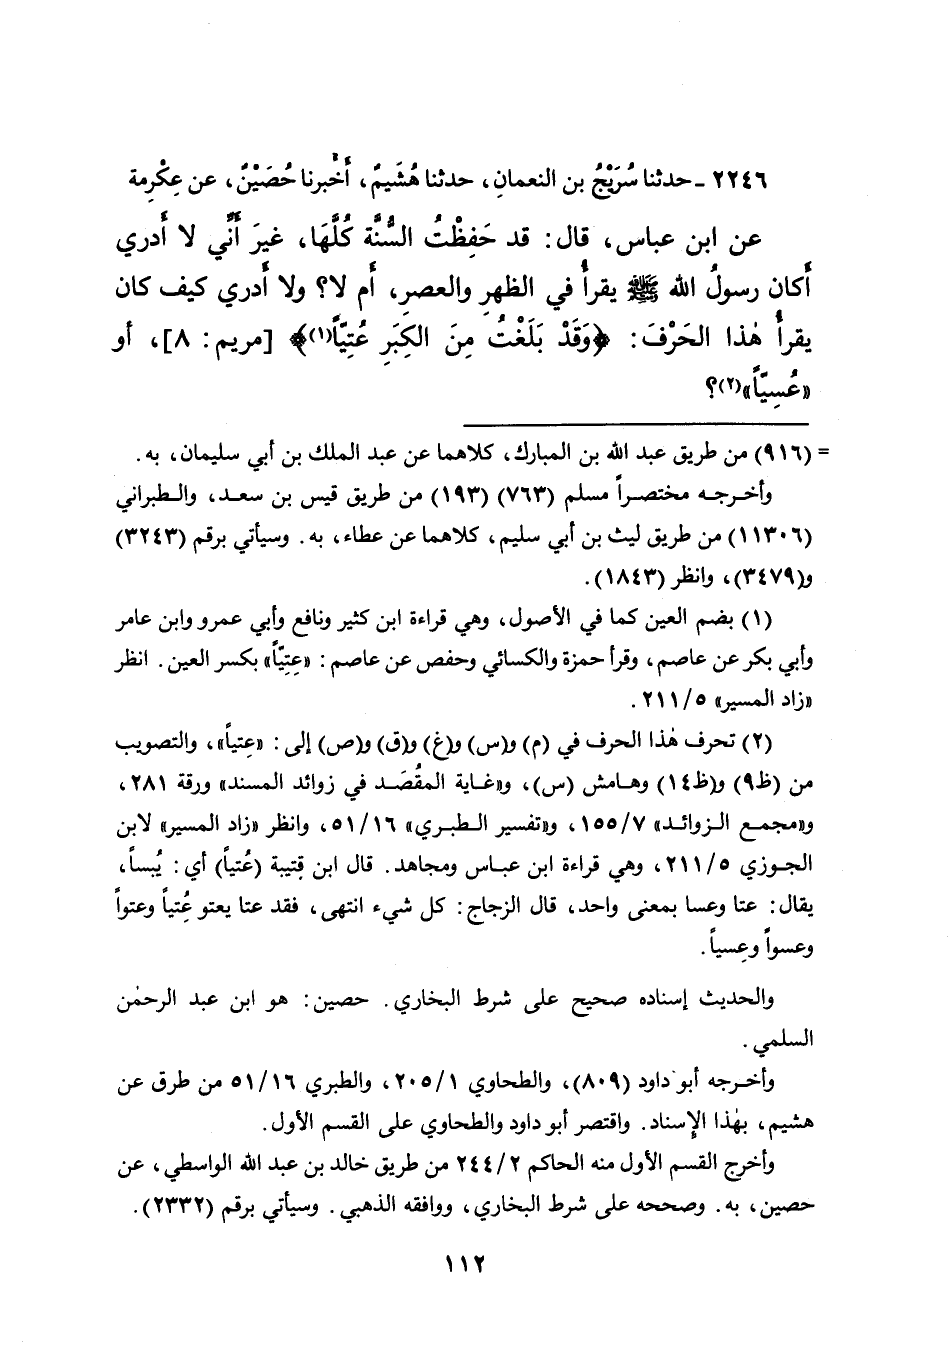 ٢٢٤٦ ـ حدثنا سُرَيْجُ بن النعمانِ، حدثنا هُشَيمٌ، أَخْبرنا حُصَيْنٌ، عن عِكْرِمة
عن ابن عباس، قال: قد حَفِظْتُ السُّنَّة كُلَّهَا، غيرَ أَنَّي لا أَدري
أَكان رسولُ الله ﷺ يقرأُ في الظهرِ والعصرِ، أم لا؟ ولا أَدري كيف كان
يقرأُ هٰذا الحَرْفَ: ﴿وَقَدْ بَلَغْتُ مِنَ الكِبَرِ عُتِيّاً(١)﴾ [مريم: ٨]، أو
«عُسِيّاً»(٢)؟
= (٩١٦) من طريق عبد الله بن المبارك، كلاهما عن عبد الملك بن أبي سليمان، به.
وأخرجه مختصراً مسلم (٧٦٣) (١٩٣) من طريق قيس بن سعد، والطبراني
(١١٣٠٦) من طريق ليث بن أبي سليم، كلاهما عن عطاء، به. وسيأتي برقم (٣٢٤٣)
و(٣٤٧٩)، وانظر (١٨٤٣).
(١) بضم العين كما في الأصول، وهي قراءة ابن كثير ونافع وأبي عمرو وابن عامر
وأبي بكر عن عاصم، وقرأ حمزة والكسائي وحفص عن عاصم: «عِتِيّاً» بكسر العين. انظر
«زاد المسير» ٢١١/٥.
(٢) تحرف هٰذا الحرف في (م) و(س) و(غ) و(ق) و(ص) إلى: «عتياً»، والتصويب
من (ظ٩) و(ظ١٤) وهامش (س)، و«غاية المقُصَد في زوائد المسند» ورقة ٢٨١،
و«مجمع الزوائد» ١٥٥/٧، و«تفسير الطبري» ٥١/١٦، وانظر «زاد المسير» لابن
الجوزي ٢١١/٥، وهي قراءة ابن عباس ومجاهد. قال ابن قتيبة (عُتياً) أي: يُبساً،
يقال: عتا وعسا بمعنى واحد، قال الزجاج: كل شيء انتهى، فقد عتا يعتو عُِتياً وعتواً
وعسواً وعِسياً.
والحديث إسناده صحيح على شرط البخاري. حصين: هو ابن عبد الرحمٰن
السلمي.
وأخرجه أبو داود (٨٠٩)، والطحاوي ٢٠٥/١، والطبري ٥١/١٦ من طرق عن
هشيم، بهٰذا الإسناد. واقتصر أبو داود والطحاوي على القسم الأول.
وأخرج القسم الأول منه الحاكم ٢٤٤/٢ من طريق خالد بن عبد الله الواسطي، عن
حصين، به. وصححه على شرط البخاري، ووافقه الذهبي. وسيأتي برقم (٢٣٣٢).
١١٢